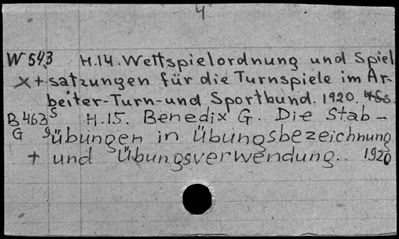 4
W 543 H.14. Wettspielordnung und Spiel
x + satzungen für die Turnspiele im Ar-
beiter-Turn-und Sportbund. 1920.
B 463 s H.15. Benedix G. Die Stab-
G 9 übungen in Übungsbezeichnung
+ und Übungsverwendung.. 1920